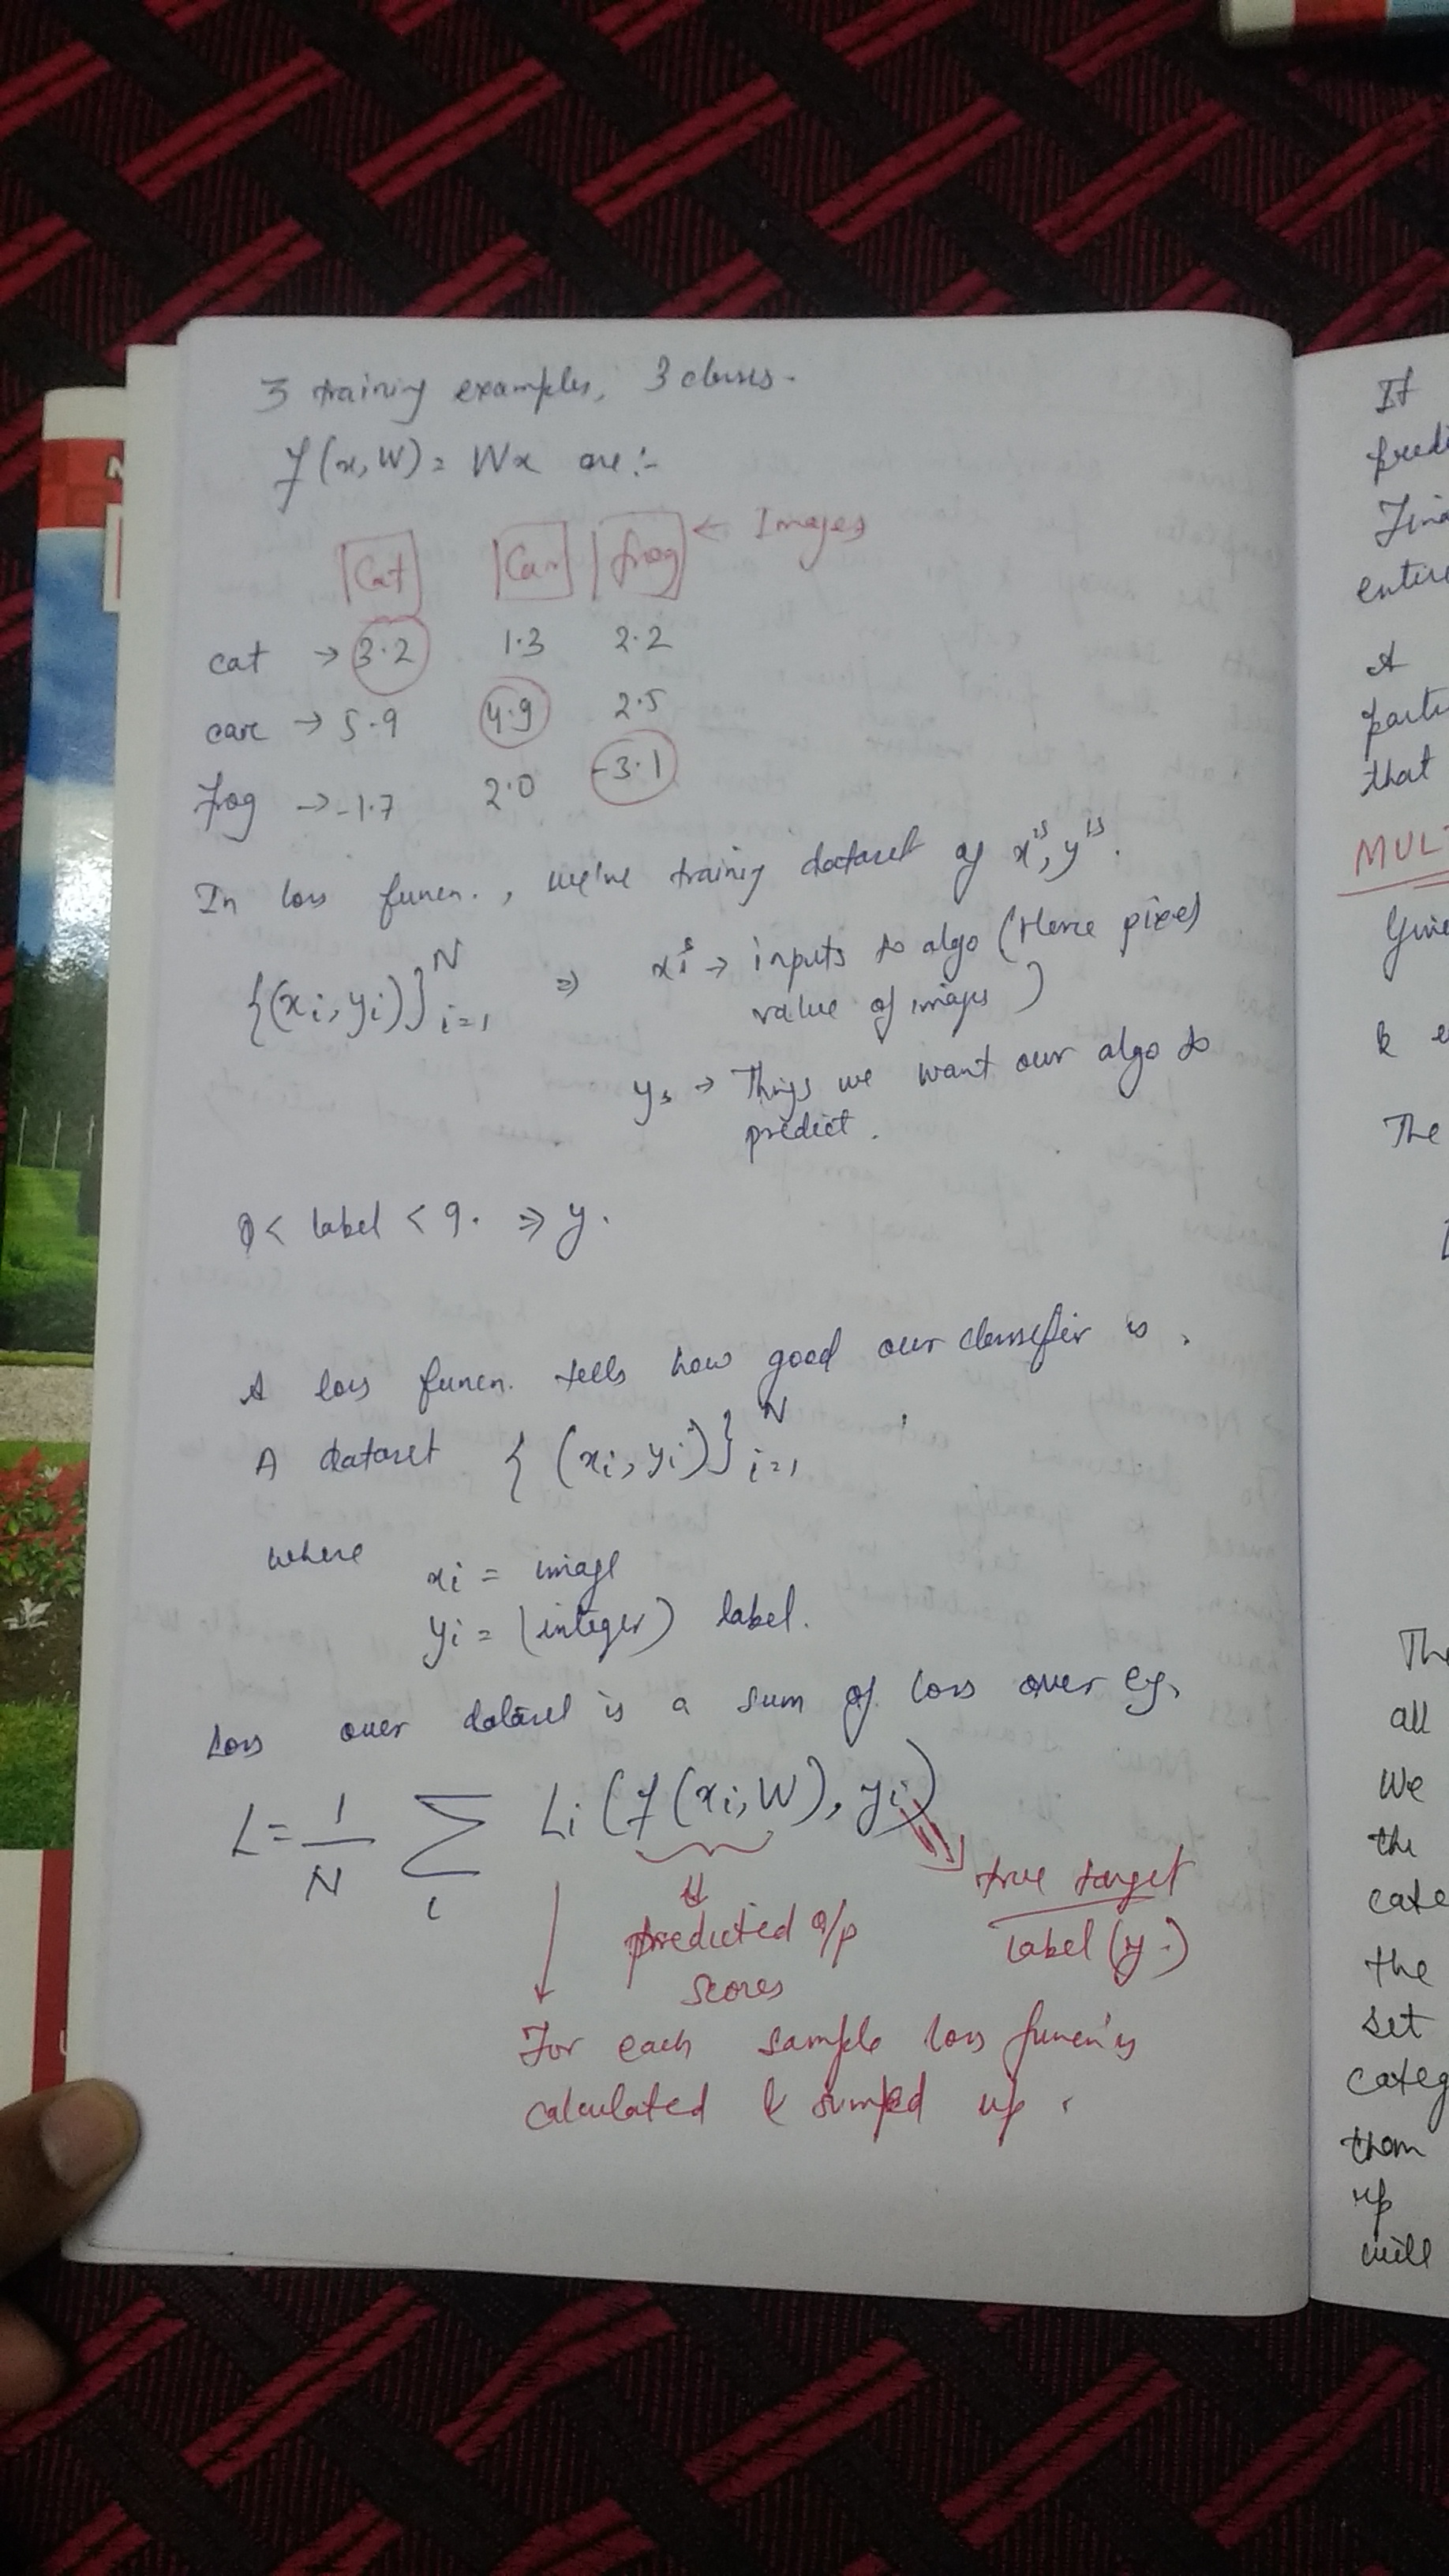 3 training examples, 3 classes.
f(x,W) = Wx are:-
Cat Car frog ← Images
cat → 3.2 1.3 2.2
care → 5.9 4.9 2.5
frog → -1.7 2.0 -3.1
In loss funcn., we've training dataset of x's, y's.
{(xi, yi)} N i=1 ⇒ xi's → inputs to algo (Here pixel
value of images)
ys → Things we want our algo to
predict.
0 < label < 9. ⇒ y.
A loss funcn. tells how good our classifier is.
A dataset {(xi, yi)} N i=1
where
xi = image
yi = (integer) label.
Loss over dataset is a sum of loss over eg.
L = 1/N Σ i Li (f(xi, W), yi)
true target
label (y.)
predicted o/p
scores
For each sample loss funcn is
calculated & sumped up.
If
predi
Fina
entire
A
partic
that
MUL
Give
k e
The
The
all
We
the
cate
the
set
categ
them
up
will